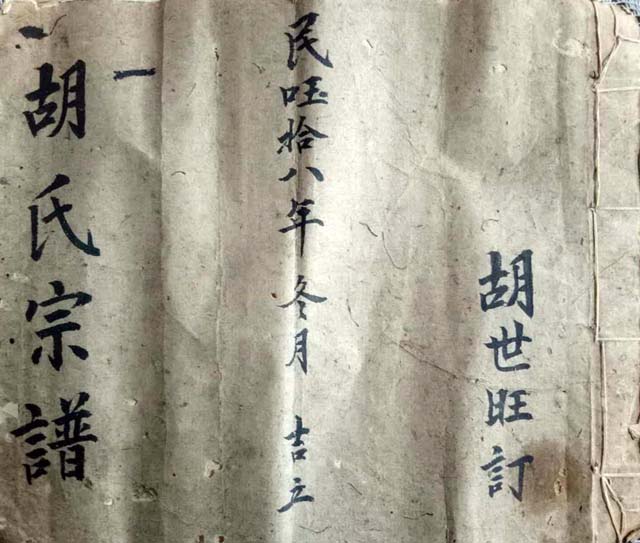 胡世旺訂
民国拾八年冬月 吉立
胡氏宗譜